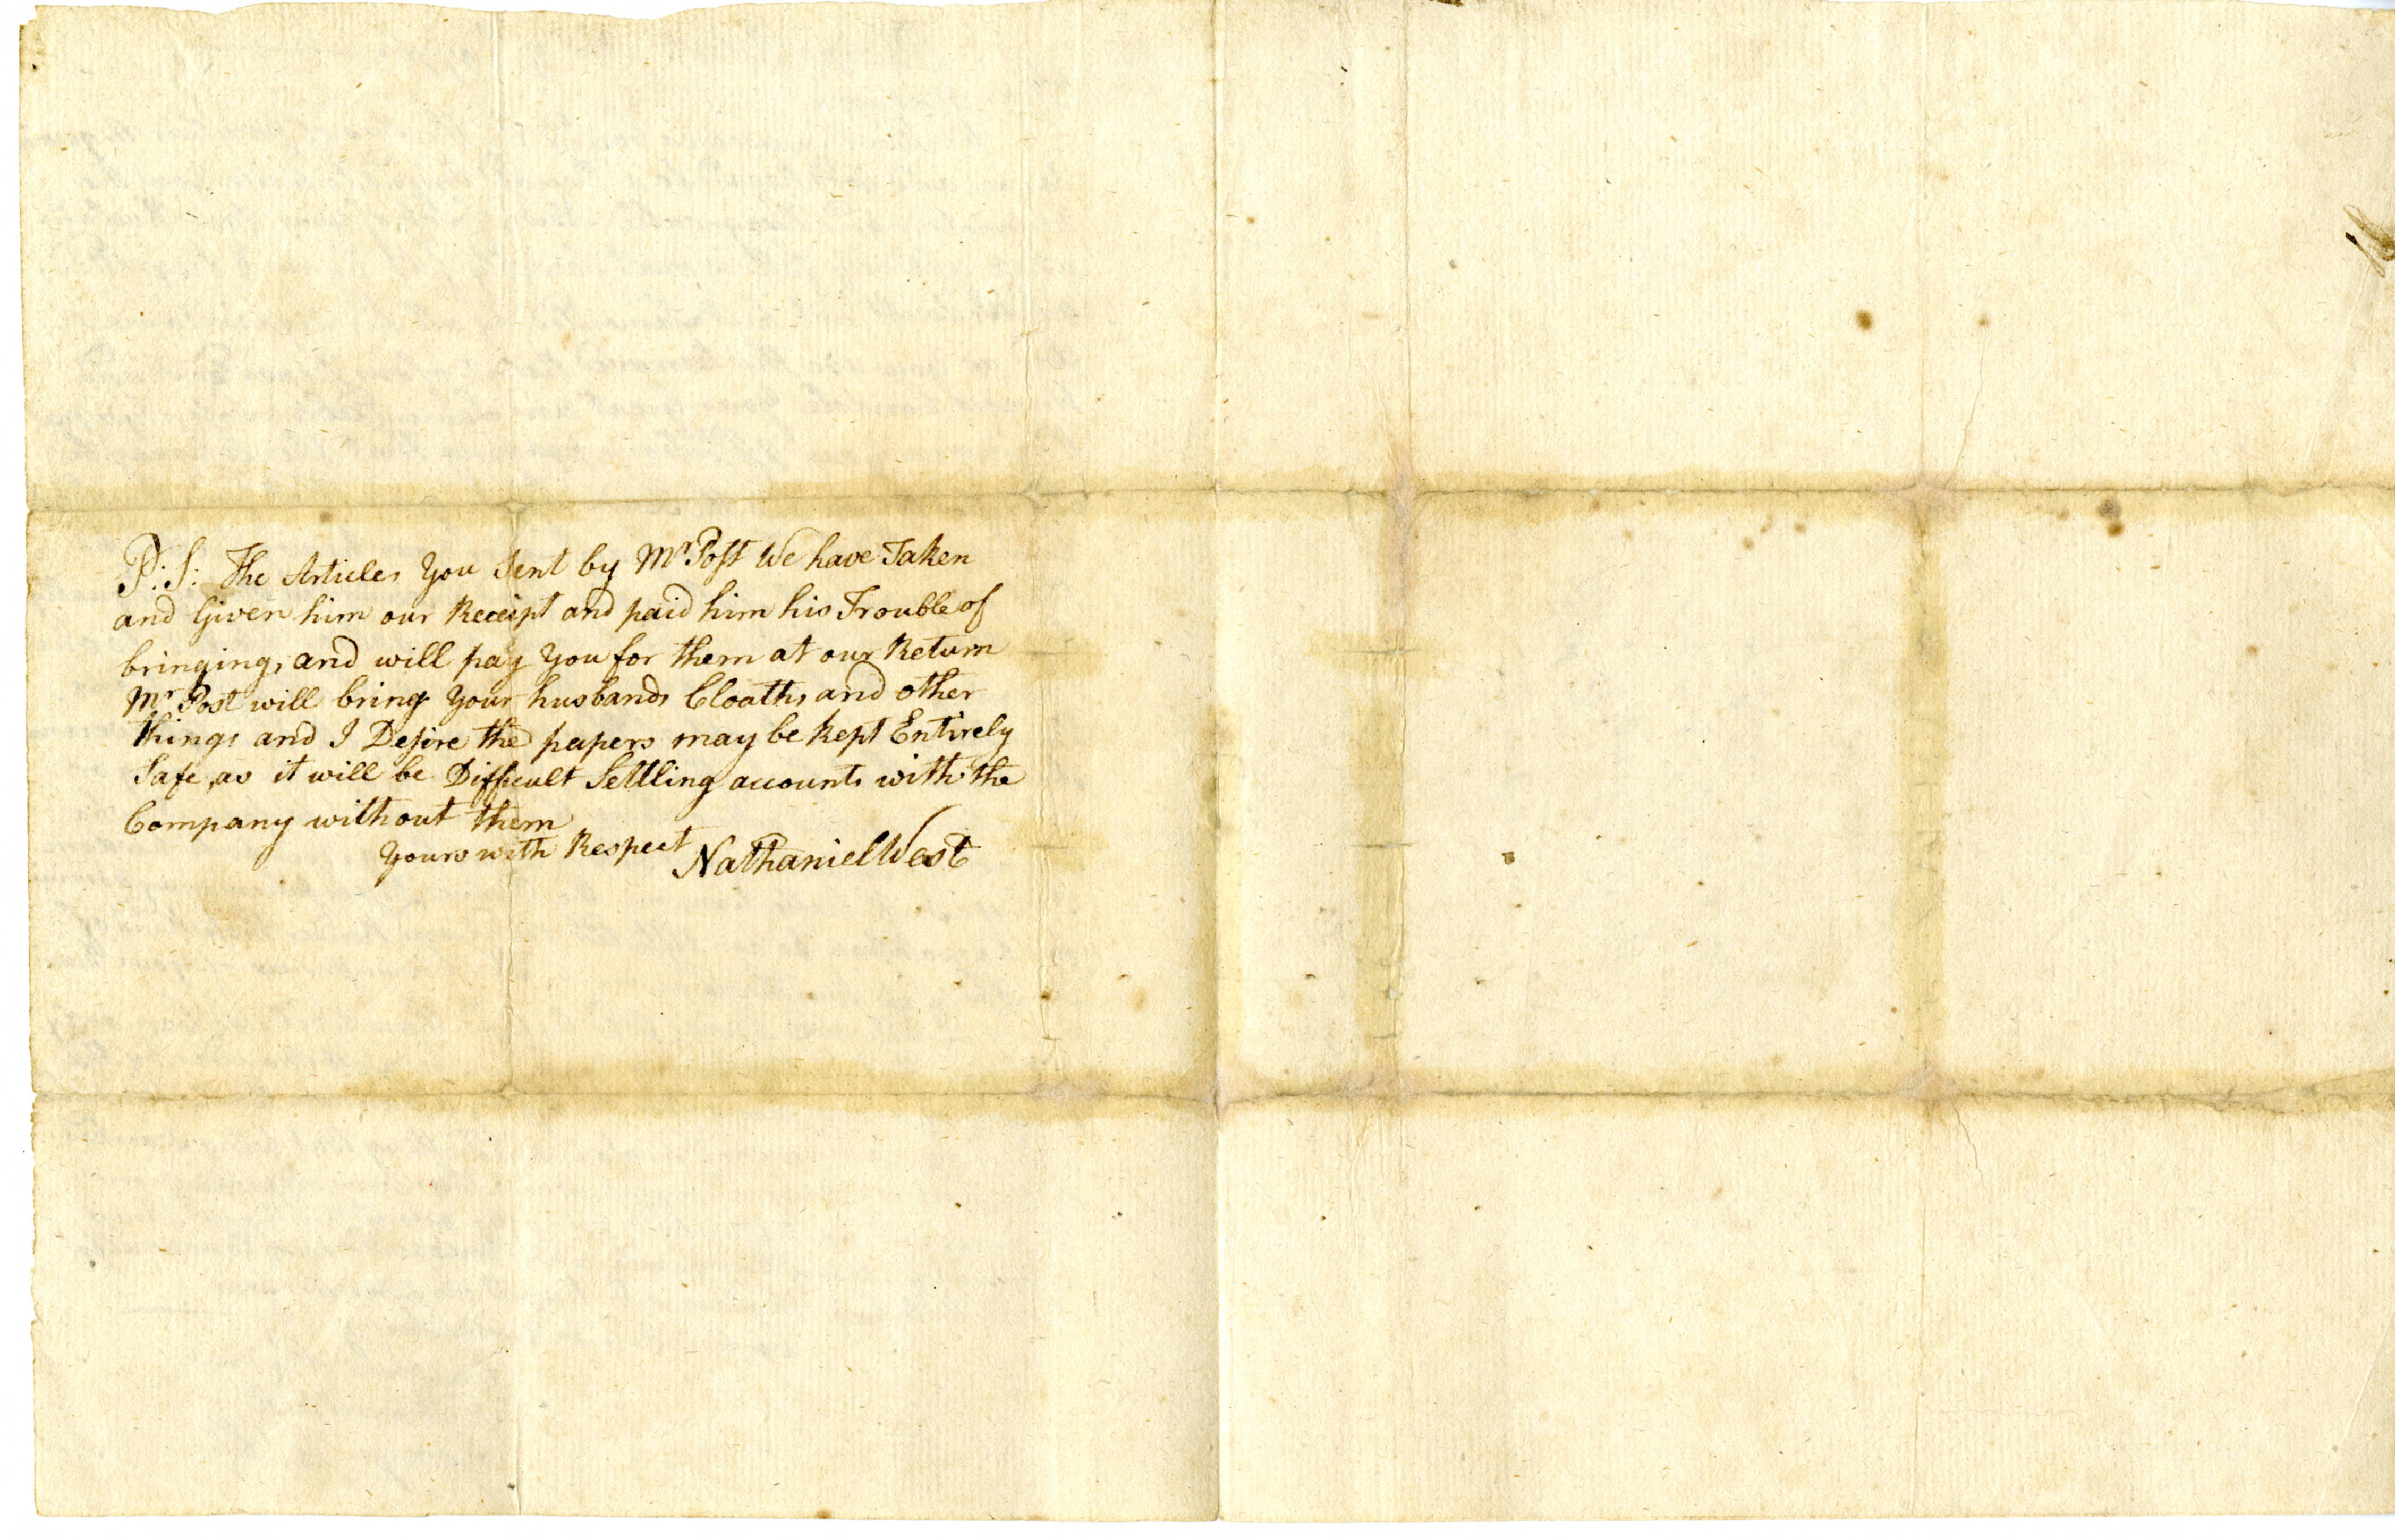 P:S: The Articles You Sent by Mr. Post We have Taken
and Given him our Receipt and paid him his Trouble of
bringing, and will pay You for them at our Return
Mr. Post will bring Your husbands Cloaths and other
things and I Desire the papers may be kept Entirely
Safe, as it will be Difficult Settling accounts with the
Company without them
Yours with Respect Nathaniel West